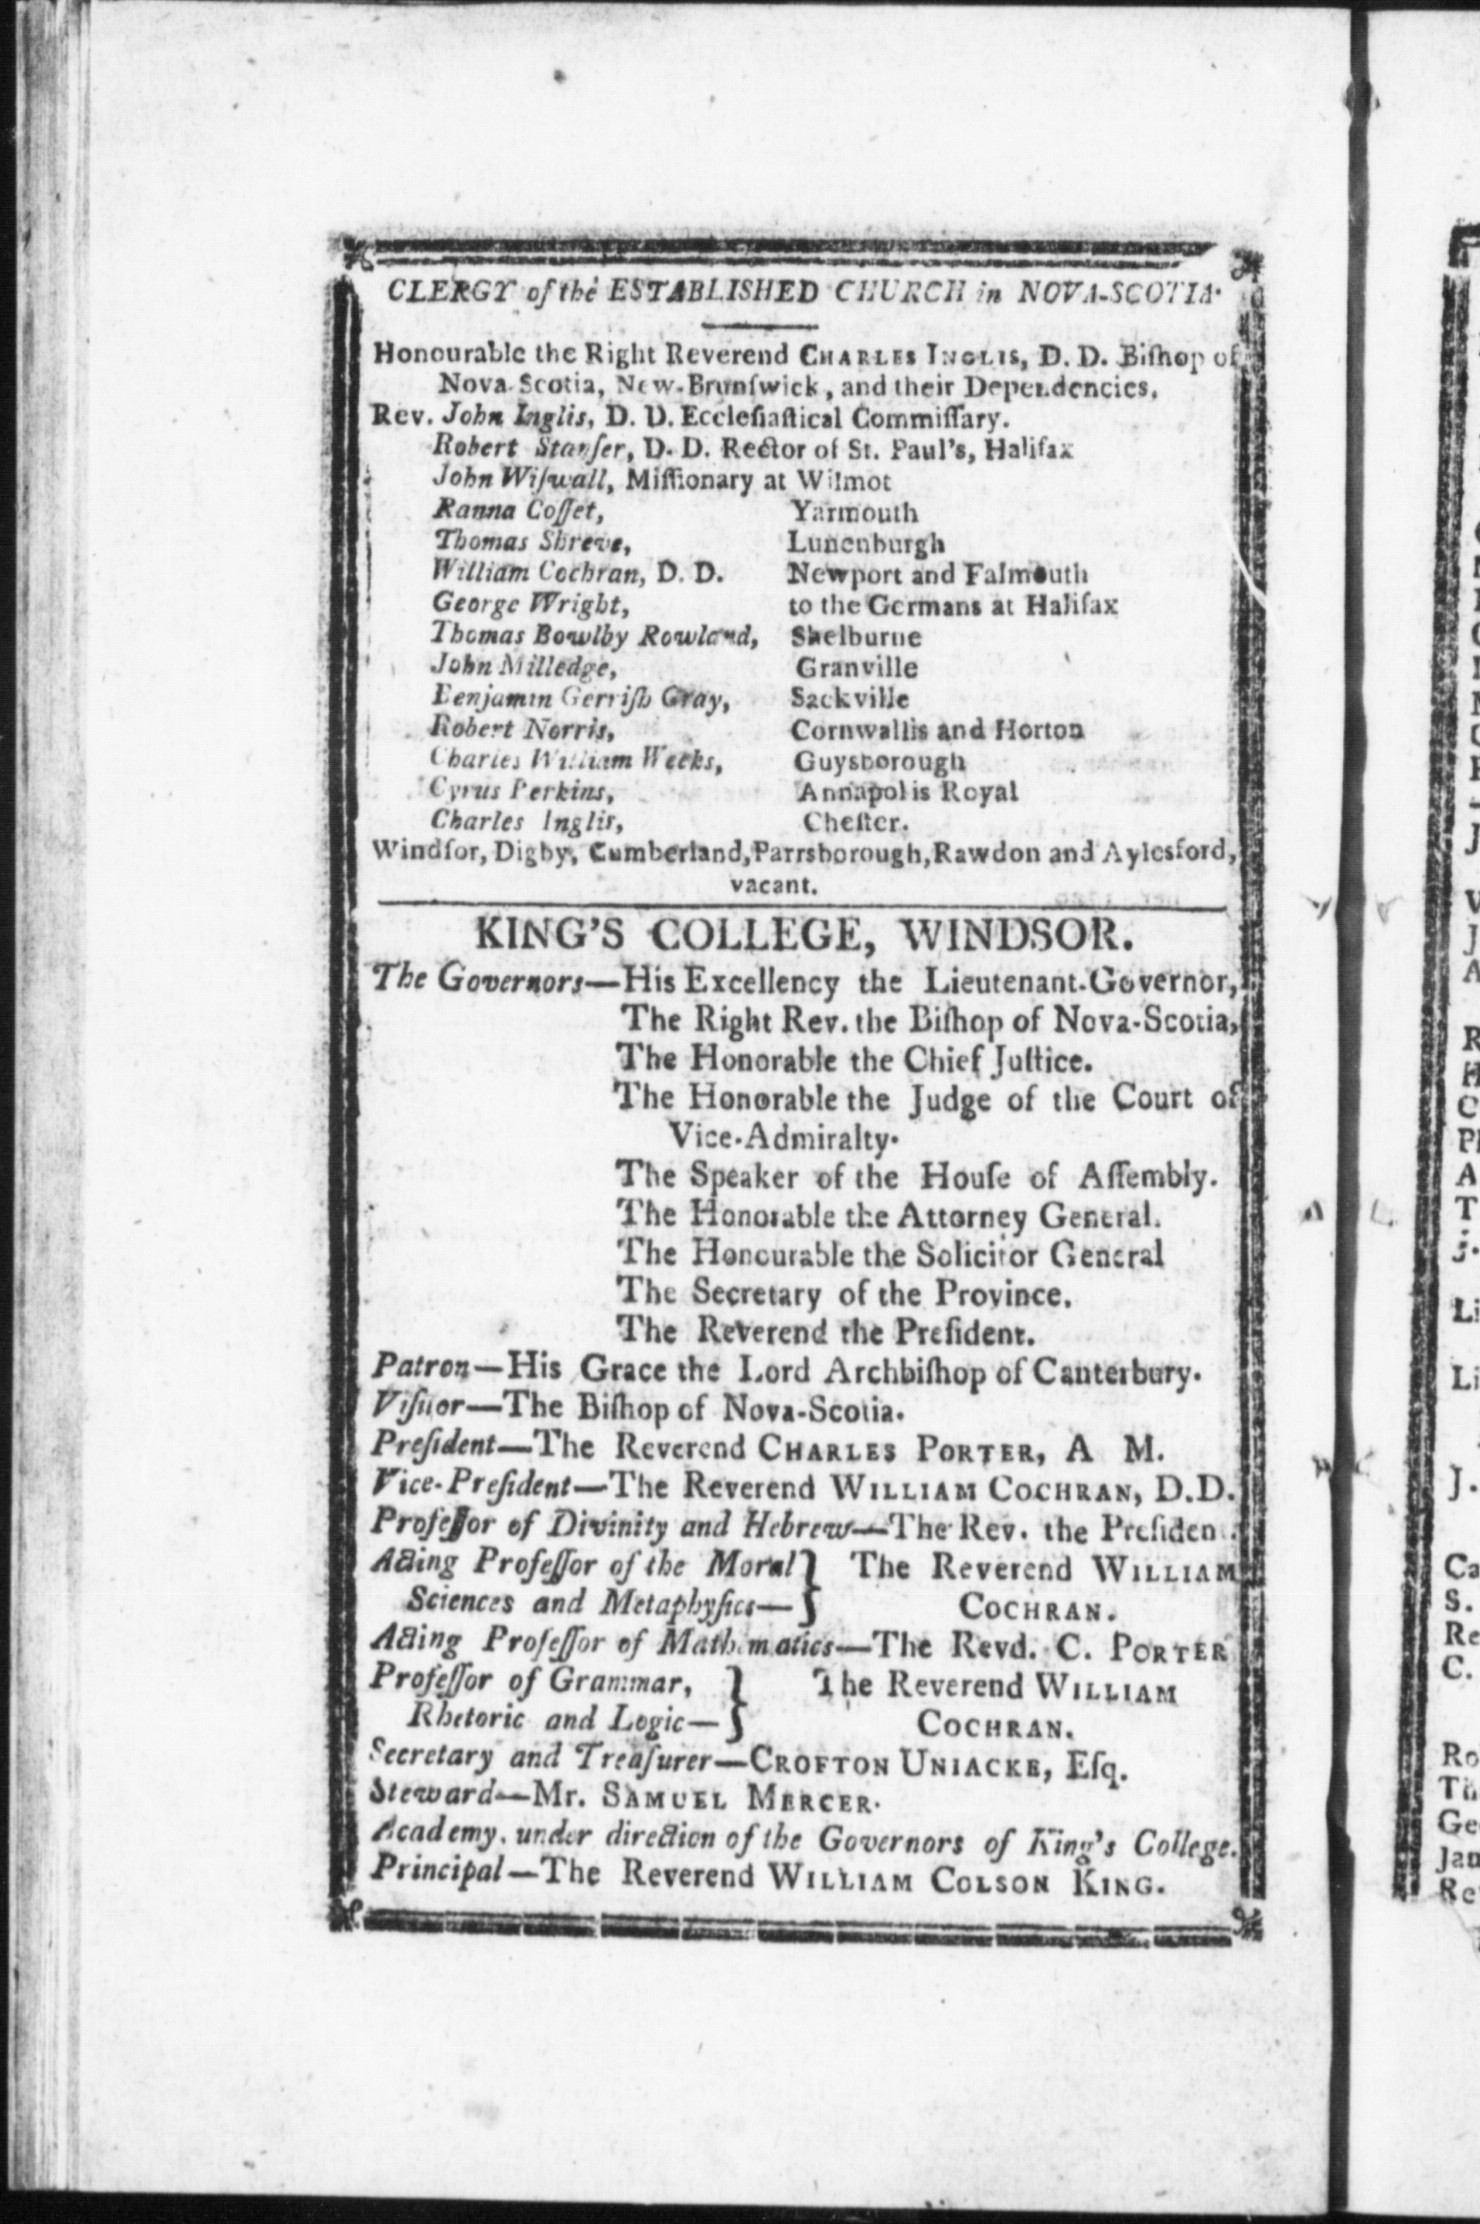 CLERGY of the ESTABLISHED CHURCH in NOVA-SCOTIA.
Honourable the Right Reverend CHARLES INGLIS, D. D. Biſhop of
Nova-Scotia, New-Brunſwick, and their Dependencies.
Rev. John Inglis, D. D. Eccleſiaſtical Commiſſary.
Robert Stanſer, D. D. Rector of St. Paul's, Halifax
John Wiſwall, Miſſionary at Wilmot
Ranna Coſſet, Yarmouth
Thomas Shreve, Lunenburgh
William Cochran, D. D. Newport and Falmouth
George Wright, to the Germans at Halifax
Thomas Bowlby Rowland, Shelburne
John Milledge, Granville
Benjamin Gerriſh Gray, Sackville
Robert Norris, Cornwallis and Horton
Charles William Weeks, Guysborough
Cyrus Perkins, Annapolis Royal
Charles Inglis, Cheſter.
Windſor, Digby, Cumberland, Parrsborough, Rawdon and Aylesford,
vacant.
KING'S COLLEGE, WINDSOR.
The Governors—His Excellency the Lieutenant-Governor,
The Right Rev. the Biſhop of Nova-Scotia,
The Honorable the Chief Juſtice.
The Honorable the Judge of the Court of
Vice-Admiralty.
The Speaker of the Houſe of Aſſembly.
The Honorable the Attorney General.
The Honourable the Solicitor General
The Secretary of the Province.
The Reverend the Preſident.
Patron—His Grace the Lord Archbiſhop of Canterbury.
Viſitor—The Biſhop of Nova-Scotia.
Preſident—The Reverend CHARLES PORTER, A M.
Vice-Preſident—The Reverend WILLIAM COCHRAN, D.D.
Profeſſor of Divinity and Hebrew—The Rev. the Preſiden .
Acting Profeſſor of the Moral } The Reverend WILLIAM
Sciences and Metaphyſics— COCHRAN.
Acting Profeſſor of Mathematics—The Revd. C. PORTER
Profeſſor of Grammar, } The Reverend WILLIAM
Rhetoric and Logic— COCHRAN.
Secretary and Treaſurer—CROFTON UNIACKE, Eſq.
Steward—Mr. SAMUEL MERCER.
Academy, under direction of the Governors of King's College.
Principal—The Reverend WILLIAM COLSON KING.